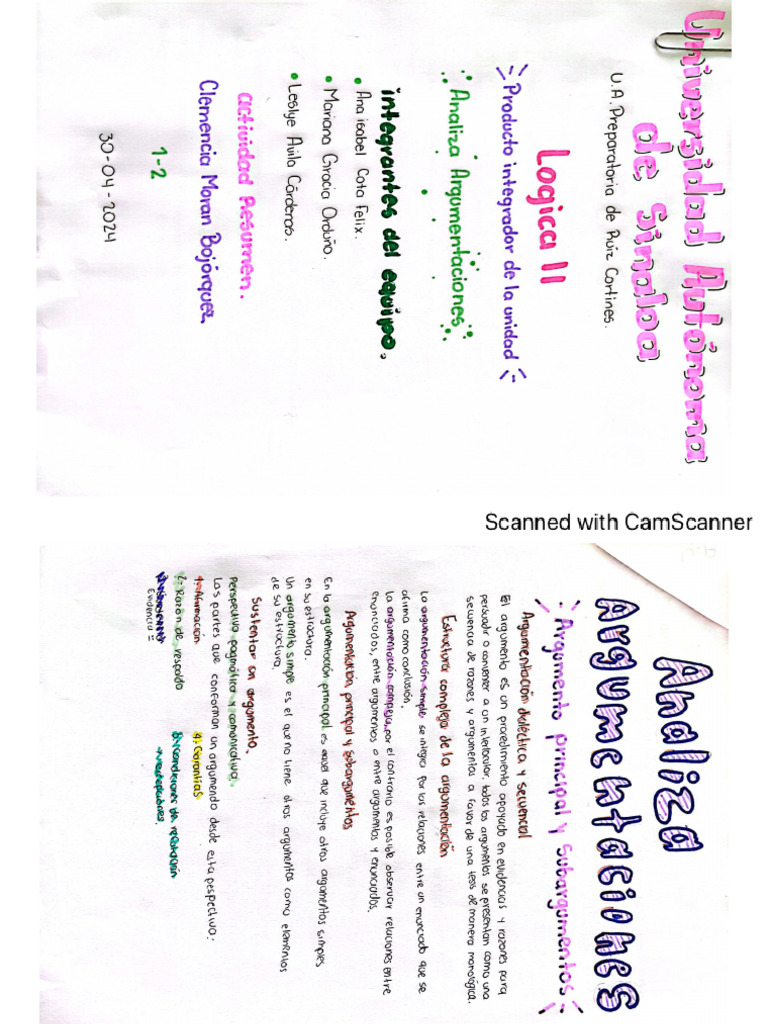 Universidad Autónoma
de Sinaloa
U.A. Preparatoria de Ruiz Cortines.
Logica II
Producto integrador de la unidad
Analiza Argumentaciones
integrantes del equipo,
• Ana isabel Cota Felix.
• Mariana Gracia Orduño.
• Leslye Avila Cárdenas.
actividad Resumen.
Clemencia Moran Bojórquez
1-2
30-04-2024
Scanned with CamScanner
Analiza
Argumentaciones
Argumento principal y Subargumentos
Argumentación dialéctica y secuencial
El argumento es un procedimiento apoyado en evidencias y razones para
persuadir o convencer a un interlocutor, todos los argumentos se presentan como una
secuencia de razones y argumentos a favor de una tesis de manera monológica.
Estructura compleja de la argumentación
La argumentación simple se integra por las relaciones entre un enunciado que se
afirma como conclusión.
La argumentación compleja, por el contrario es posible observar relaciones entre
enunciados, entre argumentos o entre argumentos y enunciados.
Argumentación principal y subargumentos
En la argumentación principal es aquel que incluye otros argumentos simples
en su estructura.
Un argumento simple es el que no tiene otros argumentos como elementos
de su estructura.
Sustentar un argumento.
Perspectiva pagmática y comunicativa.
Las partes que conforman un argumendo desde esta pespectiva:
1: Afirmación
2: Razón de respaldo
Evidencia
4: Garantías
condiciones de refutación